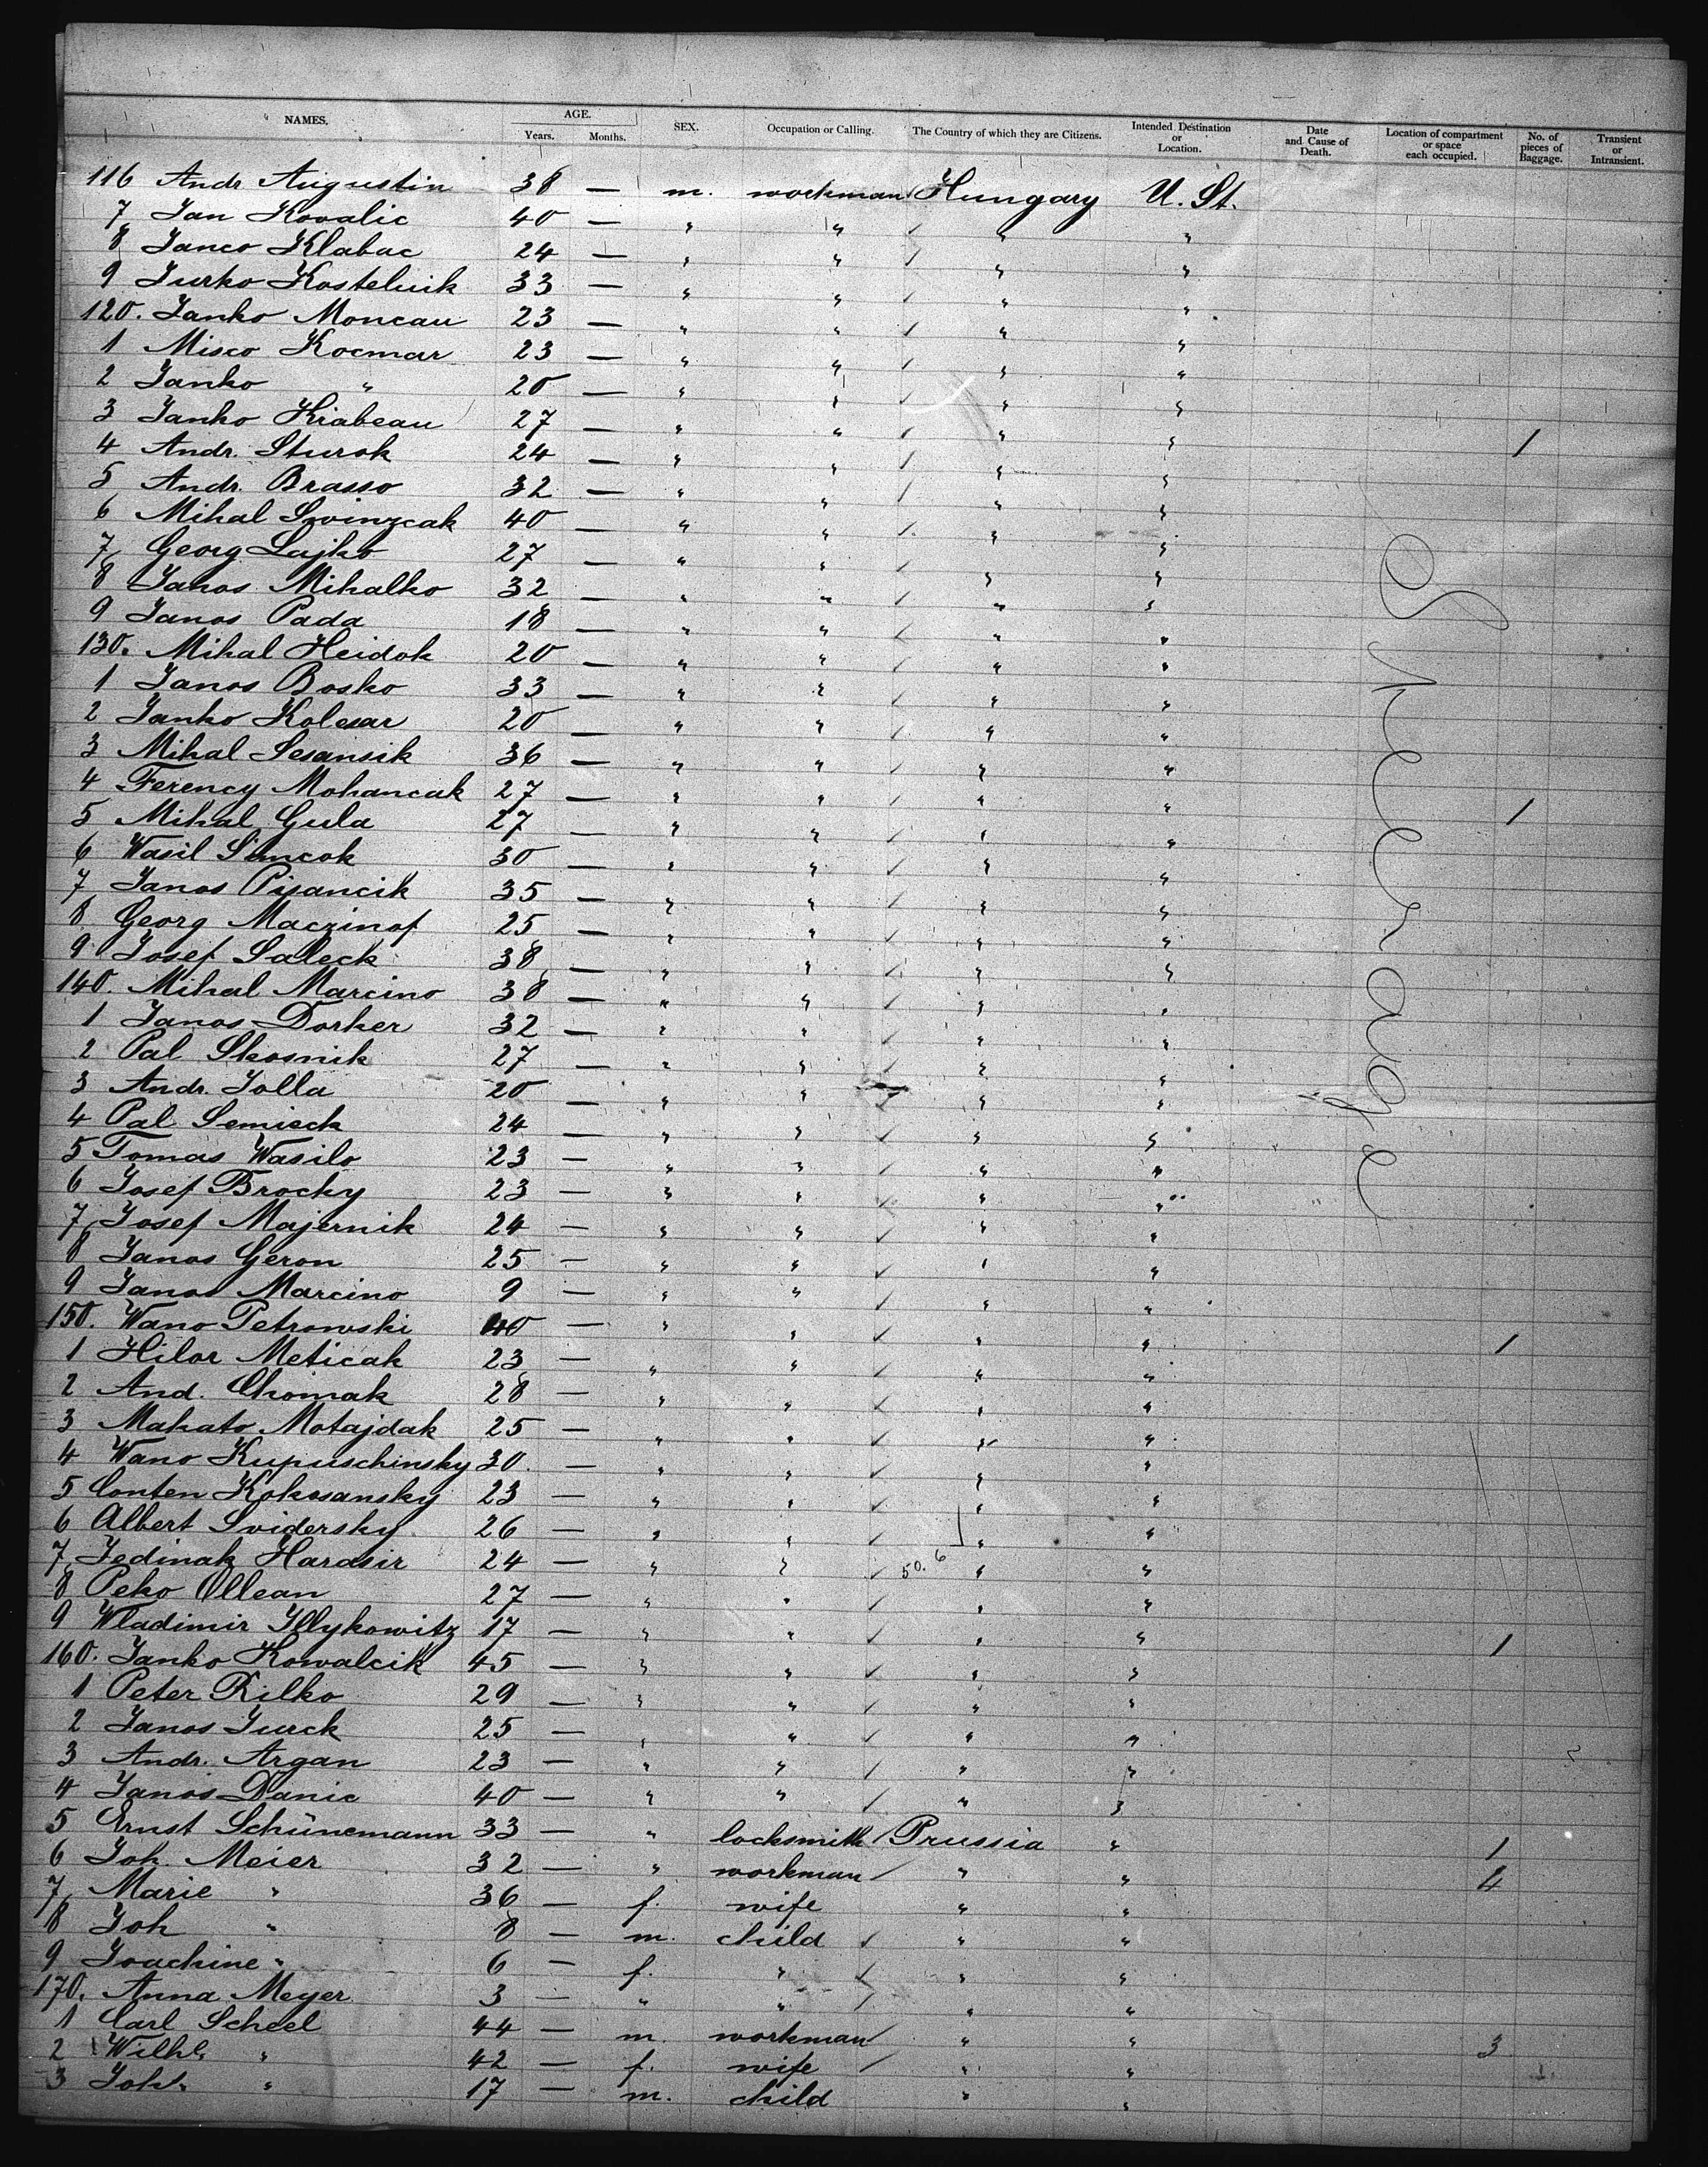 NAMES. AGE. Years. Months. SEX. Occupation or Calling. The Country of which they are Citizens. Intended Destination or Location. Date and Cause of Death. Location of compartment or space each occupied. No. of pieces of Baggage. Transient or Intransient.
116 Andr Augustin 38 — m. workman Hungary U. St.
7 Jan Kovalic 40 — " " ✓ " "
8 Janco Klabac 24 — " " ✓ " "
9 Jurko Kostelnik 33 — " " ✓ " "
120. Janko Moncau 23 — " " ✓ " "
1 Misco Kocmar 23 — " " ✓ " "
2 Janko " 20 — " " ✓ " "
3 Janko Hrabeau 27 — " " ✓ " " 1
4 Andr. Sturok 24 — " " ✓ " "
5 Andr. Brasso 32 — " " ✓ " "
6 Mihal Swinzcak 40 — " " ✓ " "
7 Georg Lajko 27 — " " " "
8 Janos Mihalko 32 — " " ✓ " "
9 Janos Pada 18 — " " ✓ " "
130. Mihal Heidok 20 — " " ✓ " "
1 Janos Bosko 33 — " " ✓ " "
2 Janko Kolesar 20 — " " ✓ " "
3 Mihal Sesansik 36 — " " ✓ " "
4 Ferency Mohancak 27 — " " ✓ " " 1
5 Mihal Gula 27 — " " ✓ " "
6 Wasil Simcok 30 — " " ✓ " "
7 Janos Pisancik 35 — " " ✓ " "
8 Georg Maczinof 25 — " " ✓ " "
9 Josef Saleck 38 — " " ✓ " "
140. Mihal Marcino 38 — " " ✓ " "
1 Janos Dorker 32 — " " ✓ " "
2 Pal Skosnik 27 — " " ✓ " "
3 Andr. Jolla 20 — " " ✓ " "
4 Pal Semisck 24 — " " ✓ " "
5 Tomas Wasilo 23 — " " ✓ " "
6 Josef Brocky 23 — " " ✓ " "
7 Josef Majernik 24 — " " ✓ " "
8 Janos Geron 25 — " " ✓ " "
9 Janos Marcino 9 — " " ✓ " "
150. Wano Petrowski 40 — " " ✓ " " 1
1 Hilor Meticak 23 — " " ✓ " "
2 And. Chomak 28 — " " ✓ " "
3 Mahato Motajdak 25 — " " ✓ " "
4 Wano Kupuschinsky 30. — " " ✓ " "
5 Conten Kokosansky 23 — " " ✓ " "
6 Albert Svidersky 26 — " " ✓ " "
7 Jedinak Harasir 24 — " " ✓ 50. 6 " "
8 Peko Ollean 27 — " " ✓ " "
9 Wladimir Illykowitz 17 — " " ✓ " " 1
160. Janko Kowalcik 45 — " " ✓ " "
1 Peter Rilko 29 — " " ✓ " "
2 Janos Jurck 25 — " " ✓ " "
3 Andr. Argan 23 — " " ✓ " "
4 Janos Danic 40 — " " ✓ " "
5 Ernst Schünemann 33 — " locksmith Prussia " 1
6 Joh. Meier 32 — " workman " " 4
7 Marie " 36 — f. wife " "
8 Joh " 8 — m. child ✓ " "
9 Joachine " 6 — f. " ✓ " "
170. Anna Meyer 3 — " " ✓ " "
1 Carl Scheel 44 — m. workman " " 3
2 Wilhl. " 42 — f. wife ✓ " "
3 Joh. " 17 — m. child " "
Steerage